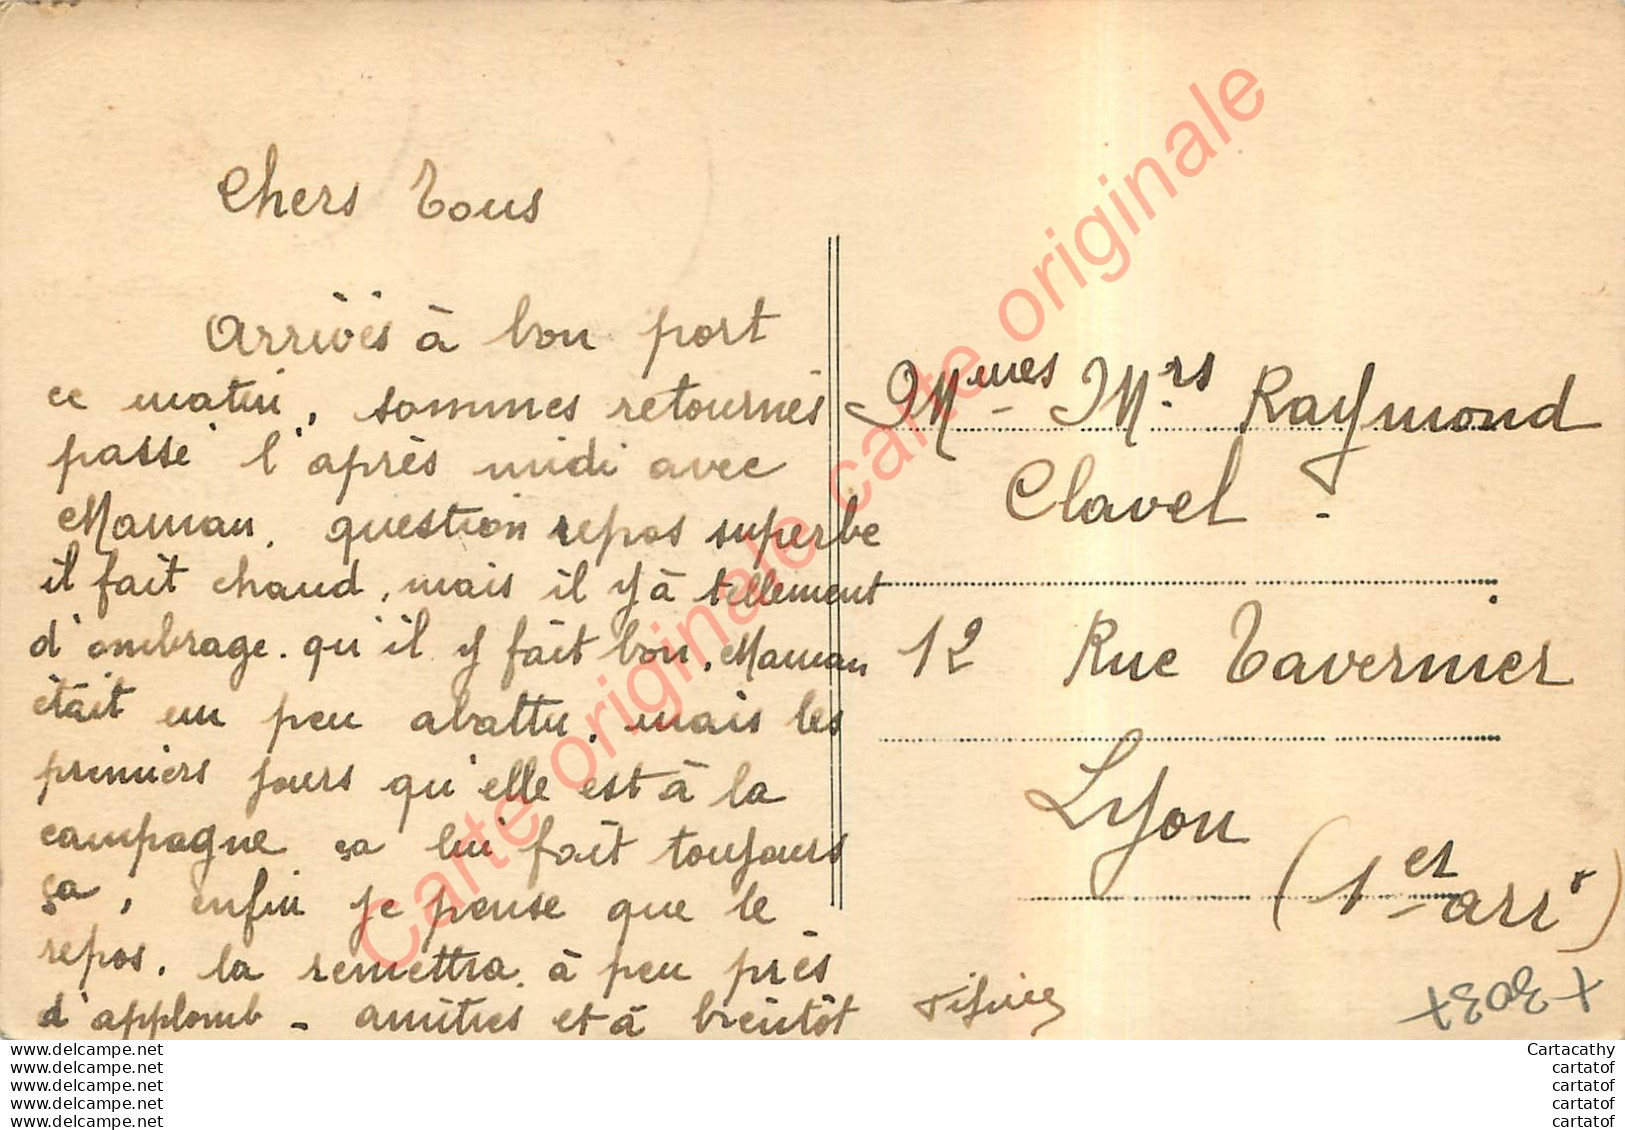 Chers Tous
Arrivés à bon port
ce matin, sommes retournés
passé l'après midi avec
Maman. question repos superbe
il fait chaud, mais il y à tellement
d'ombrage. qu'il y fait bon. Maman
était un peu abattu, mais les
premiers jours qu'elle est à la
campagne ça lui fait toujours
ça, enfin je pense que le
repos. la remettra à peu près
d'applomb - amitiés et à bientôt
Mmes Mrs Raymond
Clavel -
12 Rue Tavernier
Lyon
(1er arrt)
X303X
Carte originale carte originale
www.delcampe.net
www.delcampe.net
www.delcampe.net
www.delcampe.net
www.delcampe.net
Cartacathy
cartatof
cartatof
cartatof
cartatof